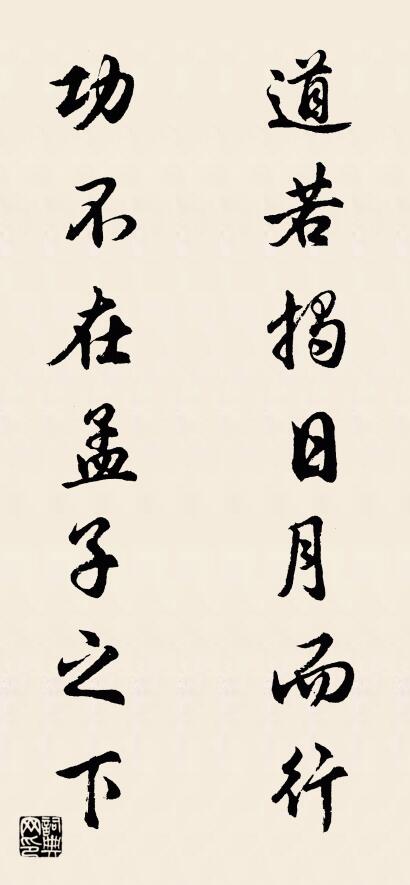 道若揭日月而行
功不在孟子之下
詞典網印